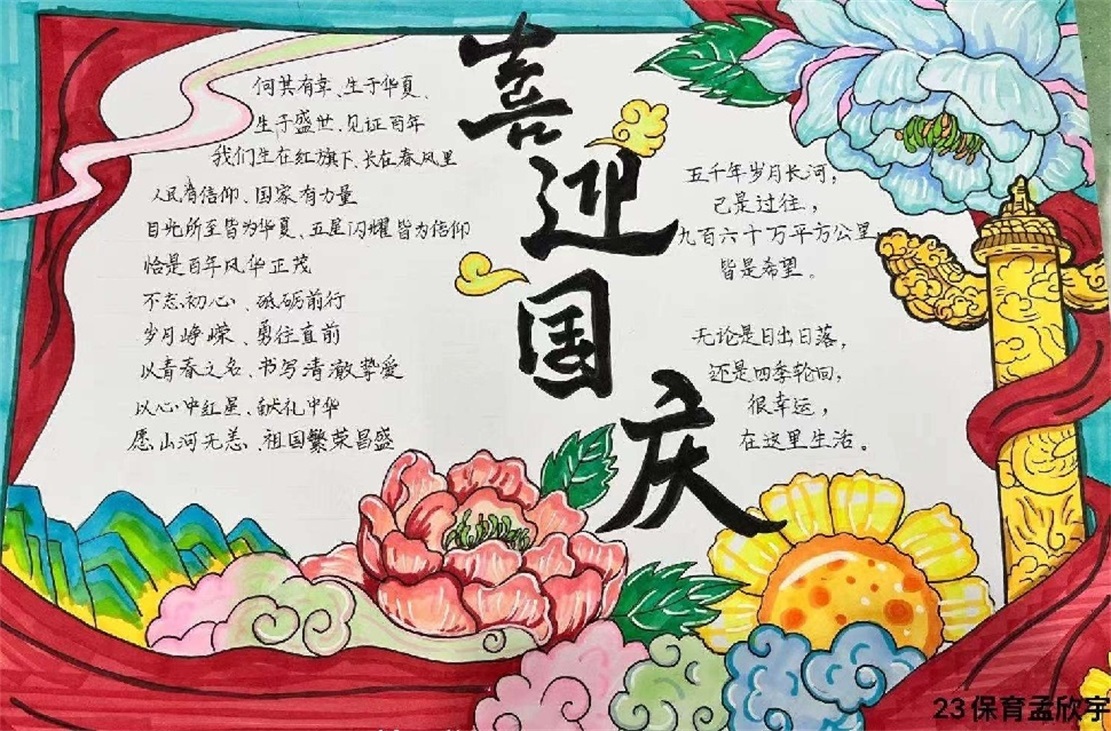 喜迎国庆
何其有幸、生于华夏、
生于盛世、见证百年
我们生在红旗下、长在春风里
人民有信仰、国家有力量
目光所至皆为华夏、五星闪耀皆为信仰
恰是百年风华正茂
不忘初心、砥砺前行
岁月峥嵘、勇往直前
以青春之名、书写清澈挚爱
以心中红星、献礼中华
愿山河无恙、祖国繁荣昌盛
五千年岁月长河，
已是过往，
九百六十万平方公里，
皆是希望。
无论是日出日落，
还是四季轮回，
很幸运，
在这里生活。
23保育孟欣宇